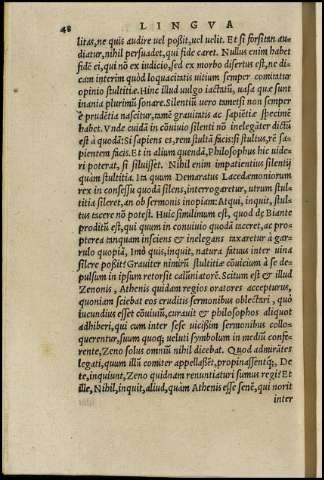 48 LINGVA
litas, ne quis audire vel possit, vel velit. Et si forsitan au-
diatur, nihil persuadet, qui fide caret. Nullus enim habet
fidē ei, qui nō ex iudicio, sed ex morbo disertus est, ne di-
cam interim quòd loquacitatis uitium semper comitatur
opinio stultitiæ. Hinc illud uulgo iactatū, uasa quæ sunt
inania plurimū sonare. Silentiū uero tametsi non semper
è prudētia nascitur, tamē grauitatis ac sapiētiæ speciem
habet. Vnde cuidā in cōuiuio silenti nō inelegāter dictū
est à quodā: Si sapiens es, rem stultā facis: si stultus, rē sa-
pientem facis. Et in alium quendā, Philosophus hic uide-
ri poterat, si siluisset. Nihil enim impatientius silentij
quam stultitia. Ita quum Demaratus Lacedæmoniorum
rex in consessu quodā silens, interrogaretur, utrum stul-
titia sileret, an ob sermonis inopiam: Atqui, inquit, stul-
tus tacere nō potest. Huic simillimum est, quod de Biante
proditū est, qui quum in conuiuio quodā taceret, ac pro-
pterea tanquam insciens & inelegans taxaretur à gar-
rulo quopiā, Imò quis, inquit, natura fatuus inter uina
silere possit? Grauiter nimirū stultitiæ cōuicium à se de-
pulsum in ipsum retorsit calūniatorē. Scitum est & illud
Zenonis, Athenis quidam regios oratores accepturus,
quoniam sciebat eos eruditis sermonibus oblectari, quò
iucundius esset cōuiuiū, curauit & philosophos aliquot
adhiberi, qui cum inter sese uicißim sermonibus collo-
querentur, suum quoq; ueluti symbolum in mediū confe-
rente, Zeno solus omniū nihil dicebat. Quod admirātes
legati, quum illū comiter appellaßēt, propinassentq;, De
te, inquiunt, Zeno quidnam renuntiaturi sumus regi? Et
ille, Nihil, inquit, aliud, quàm Athenis esse senē, qui norit
inter